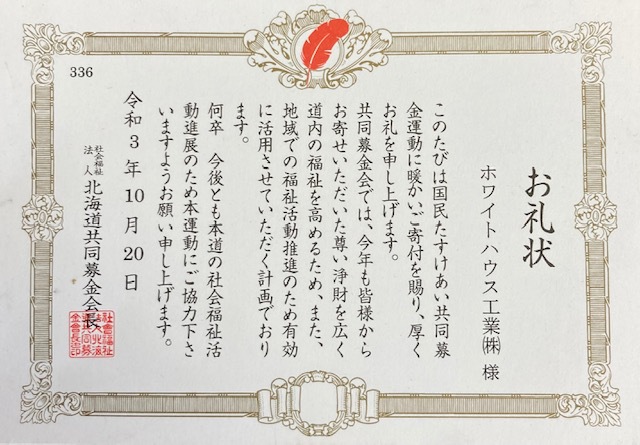 336
お礼状
ホワイトハウス工業㈱ 様
このたびは国民たすけあい共同募
金運動に暖かいご寄付を賜り、厚く
お礼を申し上げます。
共同募金会では、今年も皆様から
お寄せいただいた尊い浄財を広く
道内の福祉を高めるため、また、
地域での福祉活動推進のため有効
に活用させていただく計画でおり
ます。
何卒 今後とも本道の社会福祉活
動進展のため本運動にご協力下さ
いますようお願い申し上げます。
令和3年10月20日
社会福祉
法人 北海道共同募金会長